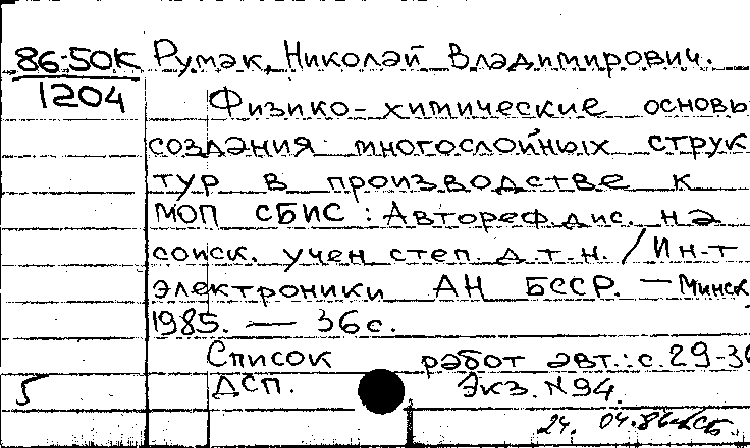 86-50К Румак, Николай Владимирович.
1204 Физико-химические основы
создания многослойных струк
тур в производстве к
МОП СБИС : Автореф. дис. на
соиск. учен степ д.т.н. / Ин-т
электроники АН БССР. — Минск
1985. — 36 с.
Список работ авт.: с. 29-36
5 ДСП. Экз. N 94.
24. 04. 86